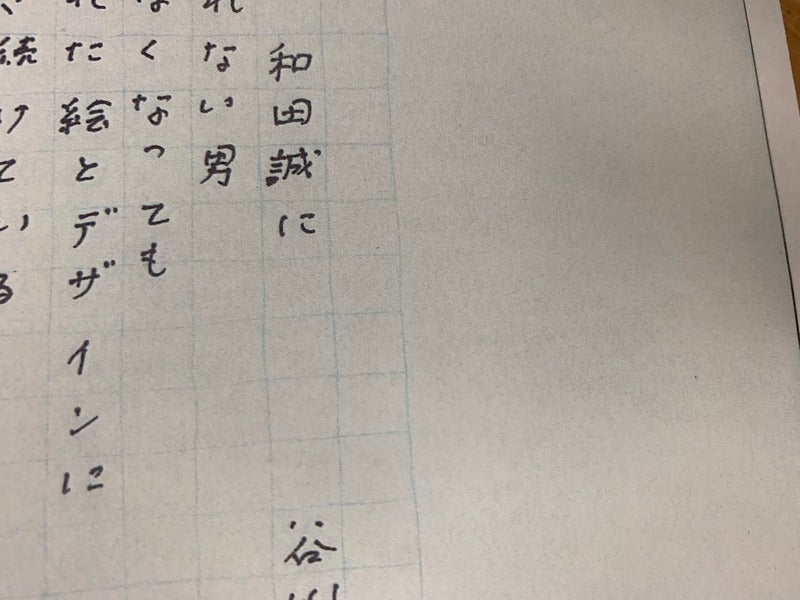 和田誠に 谷
れない男
なくなっても
れた絵とデザインに
続けている